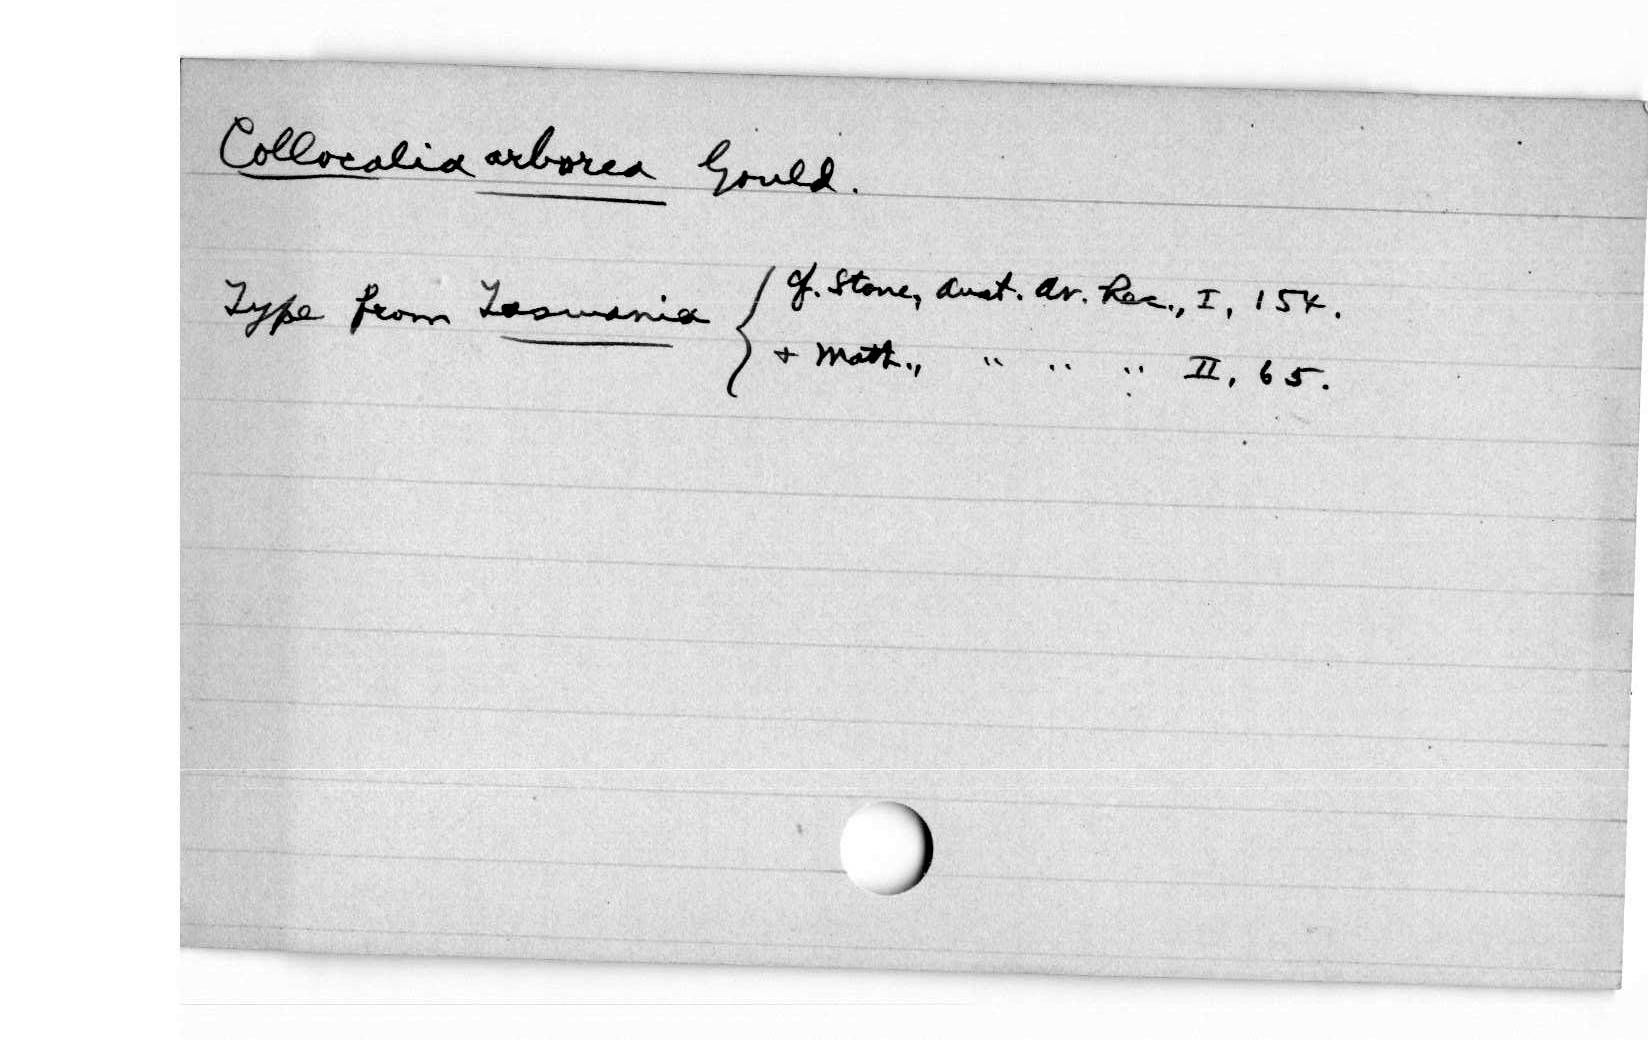 Collocalia arborea Gould.
Type from Tasmania { cf. Stone, Aust. Av. Rec., I, 154.
+ Math., " " " II, 65.